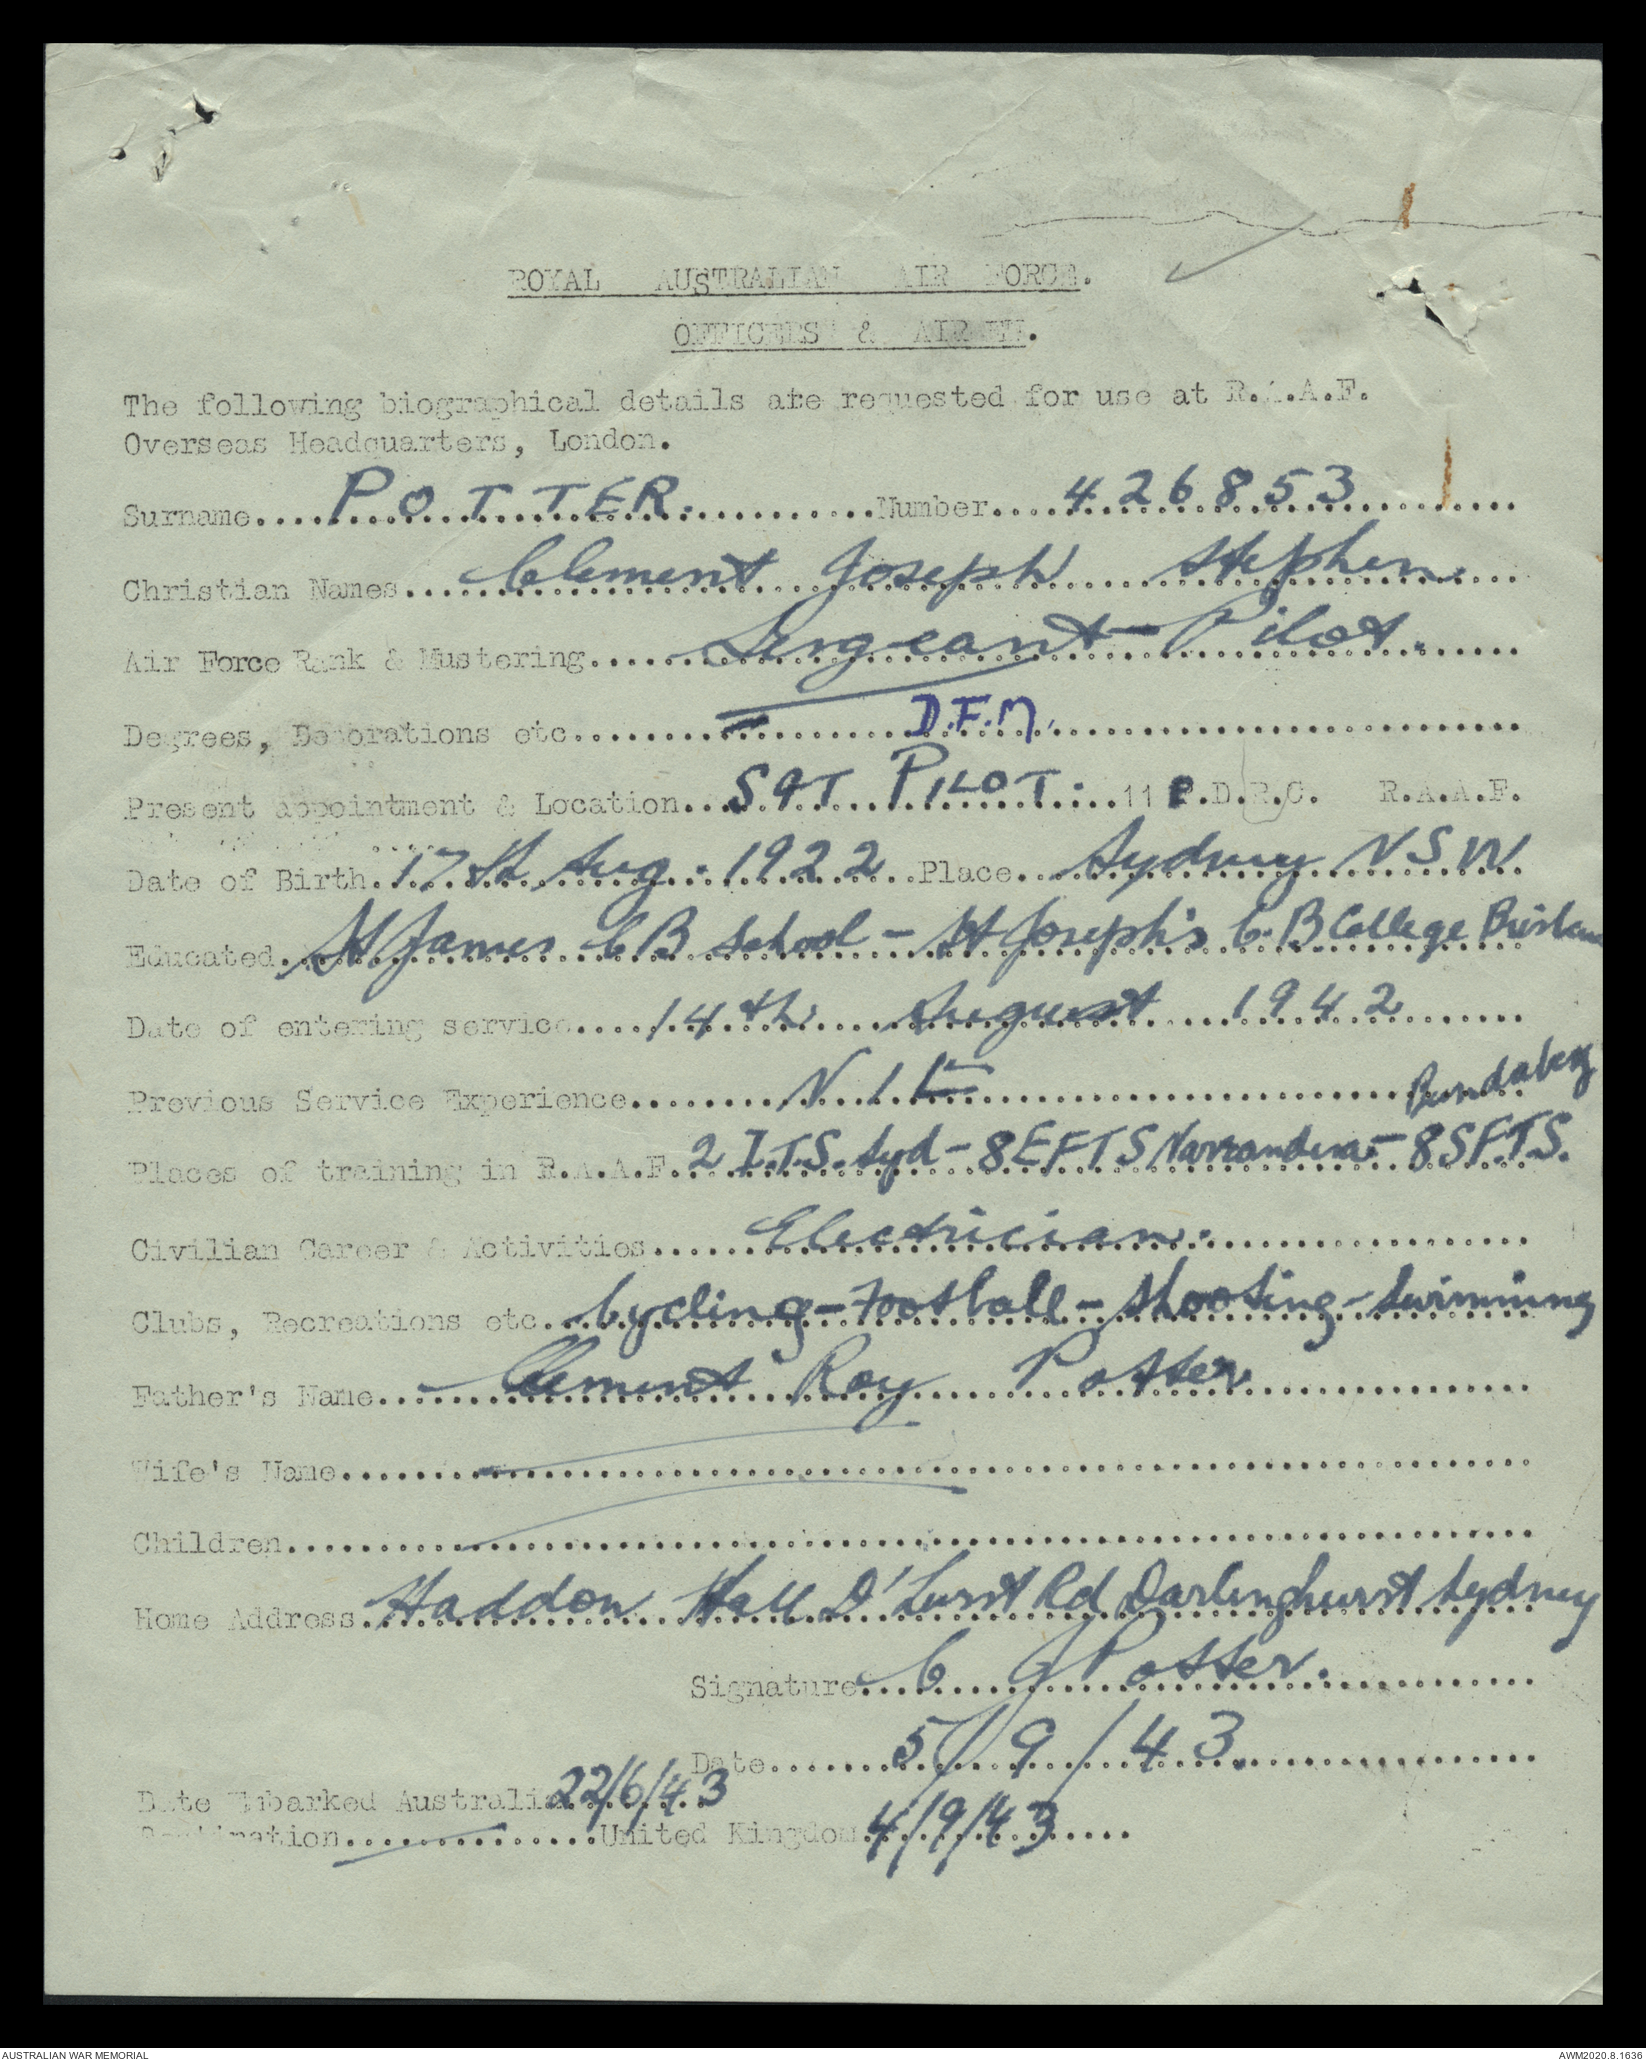 ROYAL AUSTRALIAN AIR FORCE.
OFFICERS & AIRMEN.
The following biographical details are requested for use at R.A.A.F.
Overseas Headquarters, London.
Surname....POTTER...........Number....426853.........
Christian Names....Clement Joseph Stephen....
Air Force Rank & Mustering.....Sergeant - Pilot......
Degrees, Decorations etc..........D.F.M...........................
Present appointment & Location...SGT PILOT...11 P.D.R.C. R.A.A.F.
Date of Birth.17th Aug. 1922..Place...Sydney NSW.
Educated.St James C B School - St Joseph's C.B College Brisbane
Date of entering service....14th August 1942.......
Previous Service Experience.........NIL.........................
Bundaberg
Places of training in R.A.A.F. 2 I.T.S. Syd - 8 EFTS Narrandera - 8 S.F.T.S.
Civilian Career & Activities......Electrician...................
Clubs, Recreations etc..Cycling - Football - Shooting - Swimming
Father's Name...Clement Roy Potter................
Wife's Name.................................................................
Children....................................................................
Home Address.Haddon Hall D'hurst Rd Darlinghurst Sydney
Signature...C J Potter............
Date.......5/9/43................
Date Embarked Australia 22/6/43
Destination...............United Kingdom 4/9/43....
AUSTRALIAN WAR MEMORIAL
AWM2020.8.1636